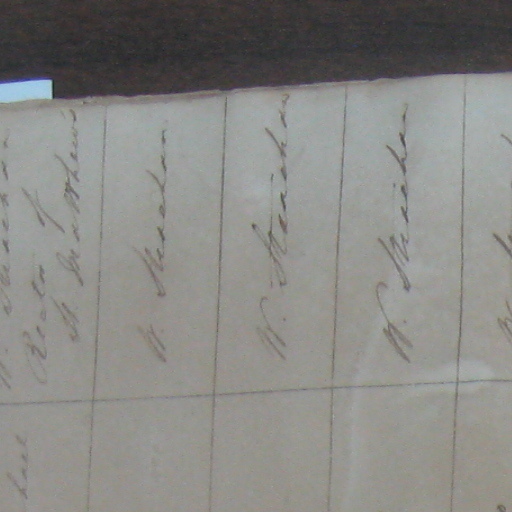 W. Strachan
Rector of
St. Matthew's
W. Strachan
W. Strachan
W. Strachan
W.